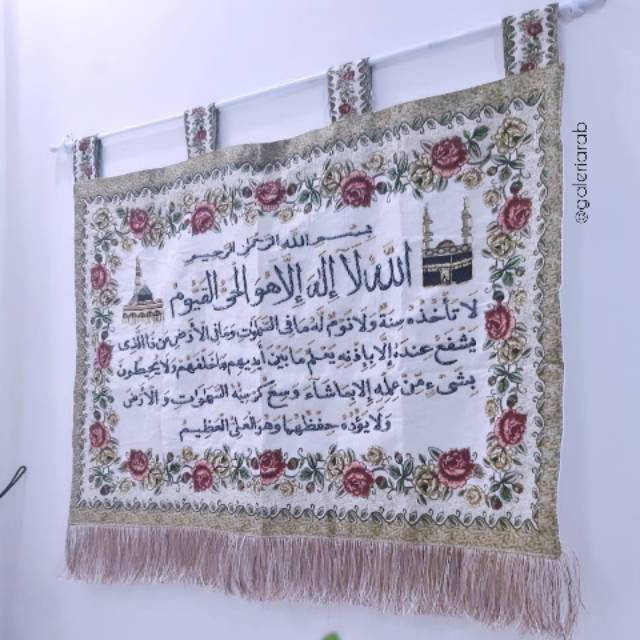 بسم الله الرحمن الرحيم
الله لا إله إلا هو الحي القيوم
لا تأخذه سنة ولا نوم له ما في السموات وما في الأرض من ذا الذي
يشفع عنده إلا بإذنه يعلم ما بين أيديهم وما خلفهم ولا يحيطون
بشيء من علمه إلا بما شاء وسع كرسيه السموات والأرض
ولا يؤده حفظهما وهو العلي العظيم
@galeriarab